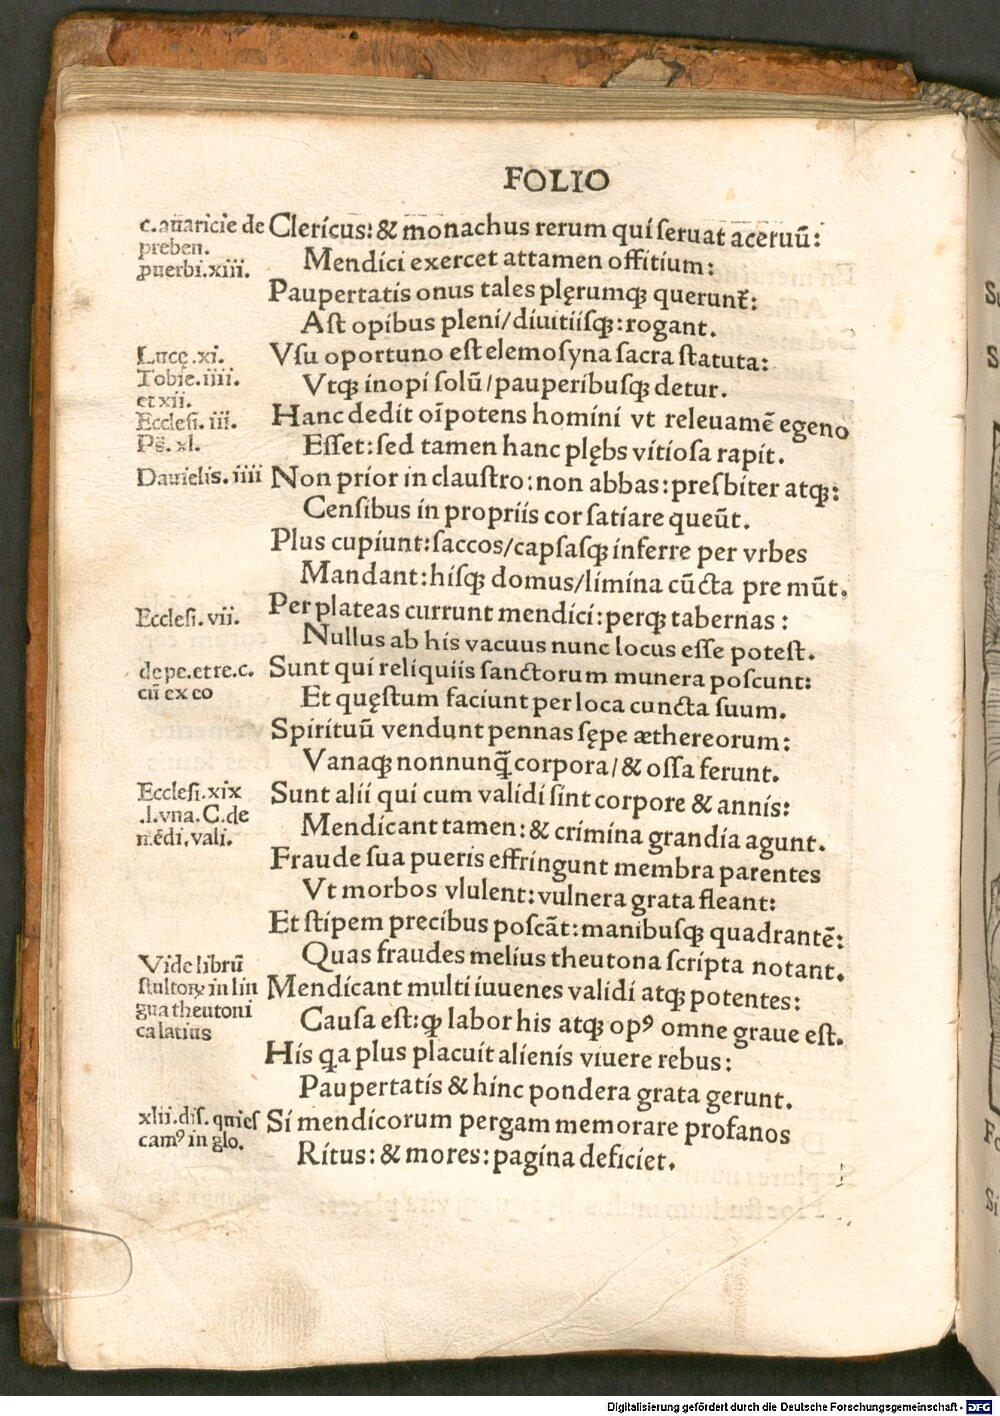 FOLIO
c.auaricie de
preben.
ꝓuerbi.xiii.
Clericus: & monachus rerum qui ſeruat aceruū:
Mendici exercet attamen offitium:
Paupertatis onus tales plęrumqꝫ querunt̄:
Aſt opibus pleni/diuitiiſqꝫ: rogant.
Lucę.xi.
Tobie.iiii.
et xii.
Eccleſi. iii.
Ps̄. xl.
Vſu oportuno eſt elemoſyna ſacra ſtatuta:
Vtqꝫ inopi ſolū/pauperibuſqꝫ detur.
Hanc dedit oīpotens homini vt releuamē egeno
Eſſet: ſed tamen hanc plębs vitioſa rapit.
Danielis. iiii
Non prior in clauſtro: non abbas: preſbiter atqꝫ:
Cenſibus in propriis cor ſatiare queūt.
Plus cupiunt: ſaccos/capſaſqꝫ inferre per vrbes
Mandant: hiſqꝫ domus/limina cūcta pre mūt.
Eccleſi. vii.
Per plateas currunt mendici: perqꝫ tabernas :
Nullus ab his vacuus nunc locus eſſe poteſt.
de pe. et re. c.
cū ex eo
Sunt qui reliquiis ſanctorum munera poſcunt:
Et quęſtum faciunt per loca cuncta ſuum.
Spirituū vendunt pennas ſępe æthereorum:
Vanaqꝫ nonnunq̄ corpora/& oſſa ferunt.
Eccleſi.xix
.l.vna. C.de
mēdi.vali.
Sunt alii qui cum validi ſint corpore & annis:
Mendicant tamen: & crimina grandia agunt.
Fraude ſua pueris effringunt membra parentes
Vt morbos vlulent: vulnera grata fleant:
Et ſtipem precibus poſcāt: manibuſqꝫ quadrantē:
Quas fraudes melius theutona ſcripta notant.
Vide librū
ſtultoꝝ in lin
gua theutoni
ca latius
Mendicant multi iuuenes validi atqꝫ potentes:
Cauſa eſt: ꝙ labor his atqꝫ opꝰ omne graue eſt.
His qa plus placuit alienis viuere rebus:
Paupertatis & hinc pondera grata gerunt.
xlii.diſ. quieſ
camꝰ in glo.
Si mendicorum pergam memorare profanos
Ritus: & mores: pagina deficiet.
Digitalisierung gefördert durch die Deutsche Forschungsgemeinschaft - DFG